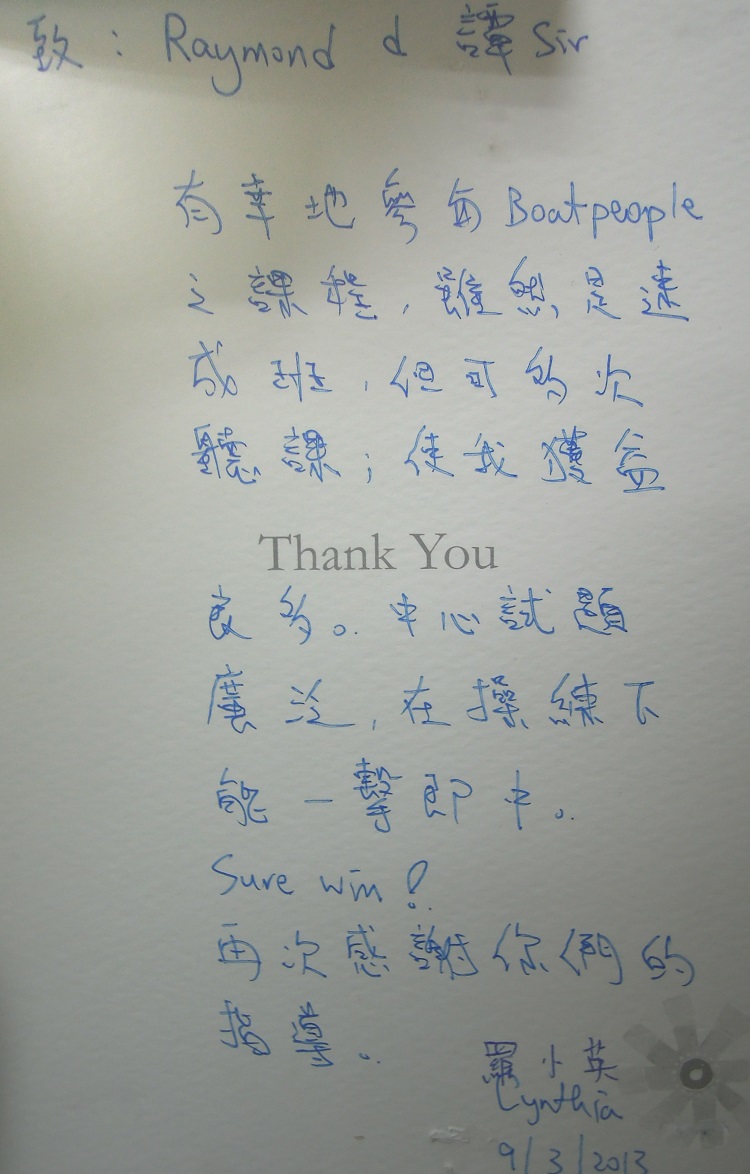 致：Raymond d 譚 Sir
有幸地參與Boatpeople
之課程，雖然是速
成班，但可多次
聽課；使我獲益
Thank You
良多。中心試題
廣泛，在操練下
能一擊即中。
Sure win!
再次感謝你們的
指導。
羅小英
Cynthia
9/3/2013